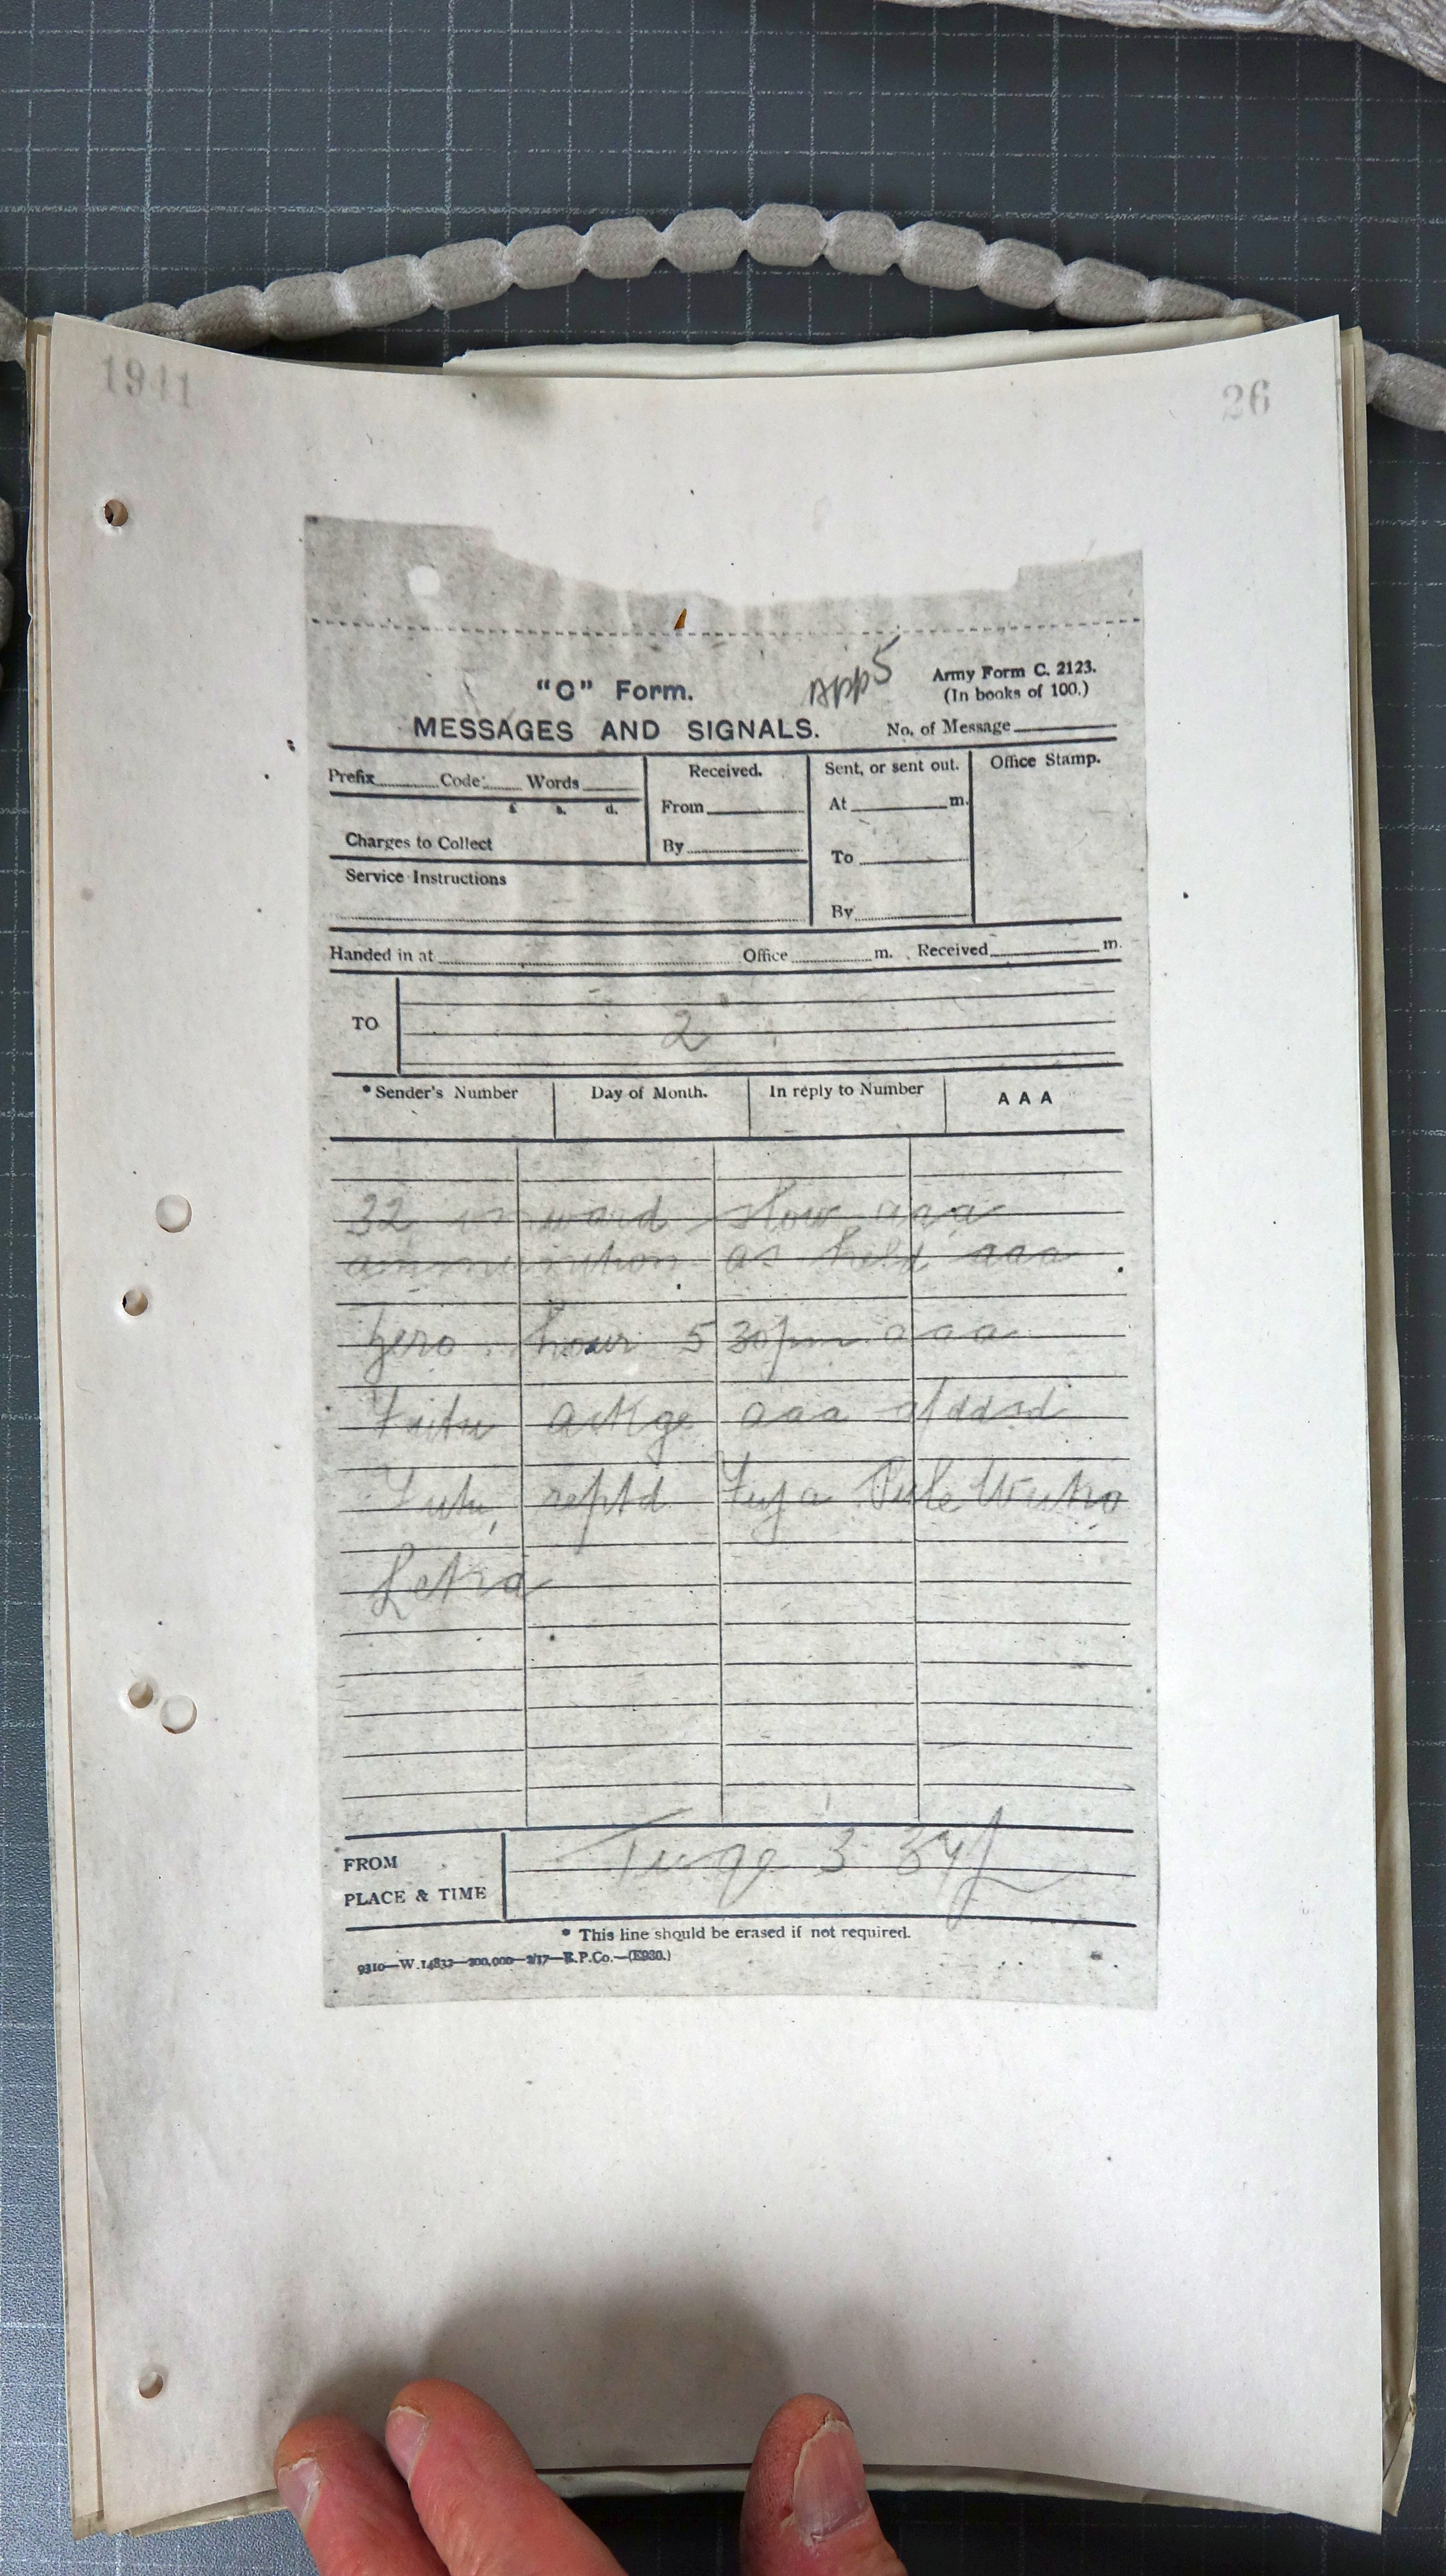 1941 26
App 5
"C" Form.
Army Form C. 2123.
(In books of 100.)
MESSAGES AND SIGNALS.
No. of Message
Prefix Code Words
Received.
Sent, or sent out.
Office Stamp.
£ s. d.
From
At m.
Charges to Collect
By
To
Service Instructions
By
Handed in at Office m. Received m.
TO
2
*Sender's Number Day of Month. In reply to Number AAA
32 ward slow aaa
ammunition as held aaa
Zero hour 5 30pm aaa
ackge aaa addsd
reptd
FROM
PLACE & TIME
3
* This line should be erased if not required.
9310—W.14832—200,000—2/17—E.P.Co.—(E930.)